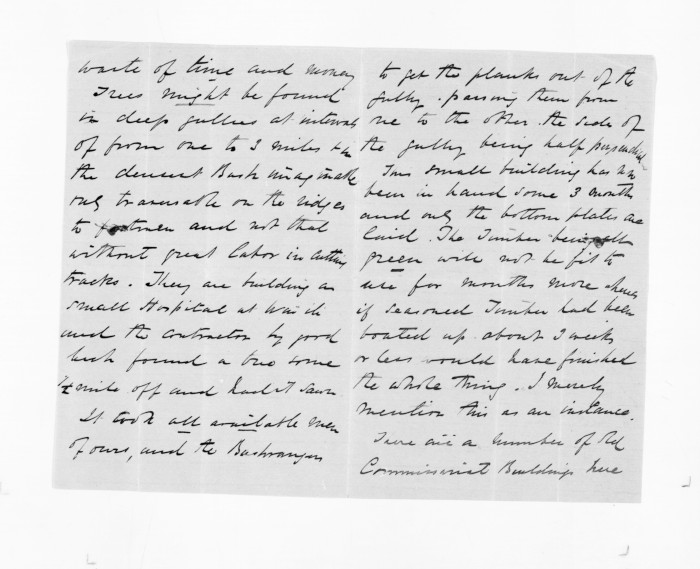 waste of time and money
Trees might be found
in deep gullies at intervals
of from one to 3 miles & in
the densest Bush imaginable
only traversable on the ridges
to footmen and not that
without great labor in cutting
tracks. They are building a
small Hospital at
and the contractor by good
luck found a tree some
1/2 mile off and had it sawn.
It took all available men
of ours, and the Bushrangers
to get the planks out of the
gully. passing them from
one to the other. the side of
the gully being half perpendicular
This small building has now
been in hand some 3 months
and only the bottom plates are
laid. The Timber being all
green will not be fit to
use for months more whereas
if seasoned Timber had been
boated up about 3 weeks
or less would have finished
the whole thing. I merely
mention this as an instance.
There are a number of old
Commissariat Buildings here